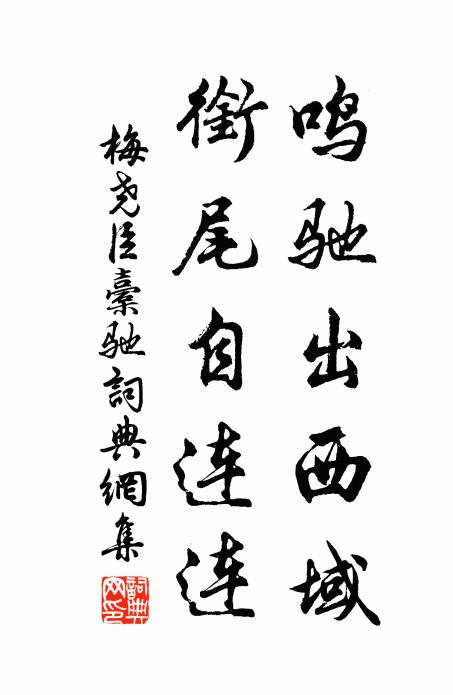 鸣驰出西域
衔尾自连连
梅尧臣橐驰詞典網集
詞典網印